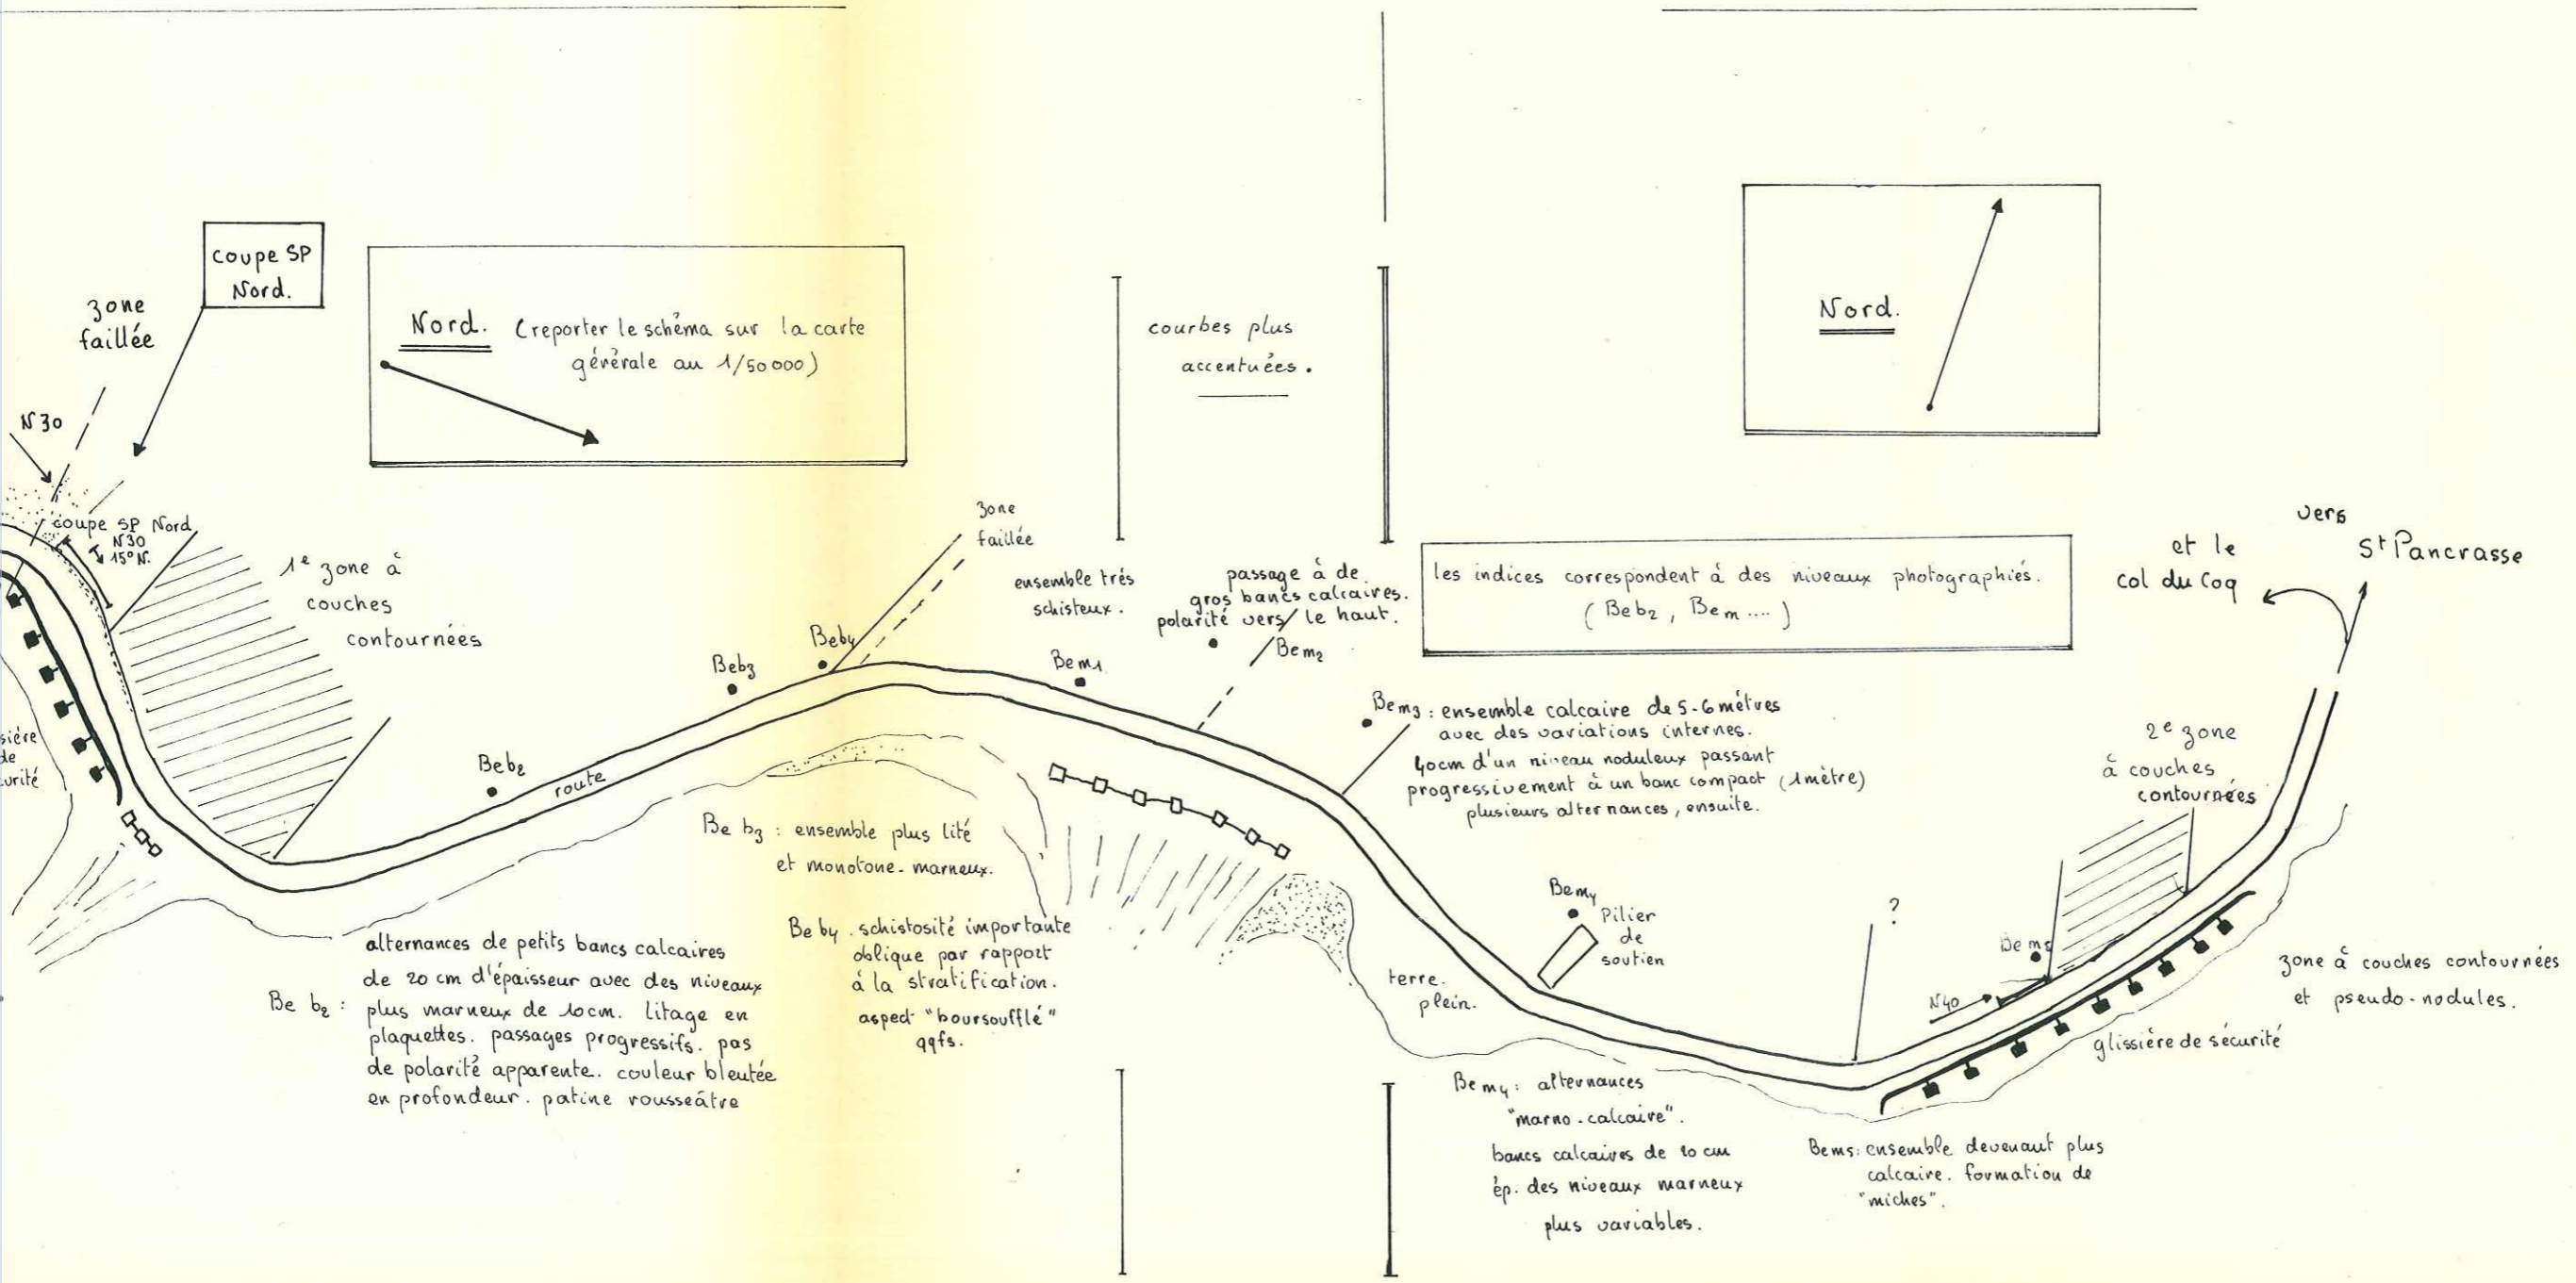 coupe SP
Nord.
zone
faillée
N30
Nord. (reporter le schéma sur la carte
générale au 1/50000)
courbes plus
accentuées.
Nord.
coupe SP Nord
N30
15° N.
1e zone à
couches
contournées
zone
faillée
ensemble trés
schisteux.
passage à de
gros bancs calcaires.
polarité vers le haut.
Bem2
les indices correspondent à des niveaux photographiés.
(Beb2, Bem....)
vers
St Pancrasse
et le
col du Coq
Beb4
Beb3
Bem1
Beb2
route
Bem3 : ensemble calcaire de 5-6 métres
avec des variations internes.
40cm d'un niveau noduleux passant
progressivement à un banc compact (1mètre)
plusieurs alternances, ensuite.
2e zone
à couches
contournées
sière
de
urité
Be b3 : ensemble plus lité
et monotone-marneux.
Be b4. schistosité importante
oblique par rapport
à la stratification.
aspect "boursoufflé"
qqfs.
alternances de petits bancs calcaires
de 20 cm d'épaisseur avec des niveaux
Be b2 : plus marneux de 10cm. litage en
plaquettes. passages progressifs. pas
de polarité apparente. couleur bleutée
en profondeur. patine rousseâtre
Bem4
Pilier
de
soutien
terre.
plein.
?
Bem5
N40
zone à couches contournées
et pseudo-nodules.
glissière de sécurité
Bem4 : alternances
"marno-calcaire".
bancs calcaires de 20 cm
ép. des niveaux marneux
plus variables.
Bem5: ensemble devenant plus
calcaire. formation de
"miches".